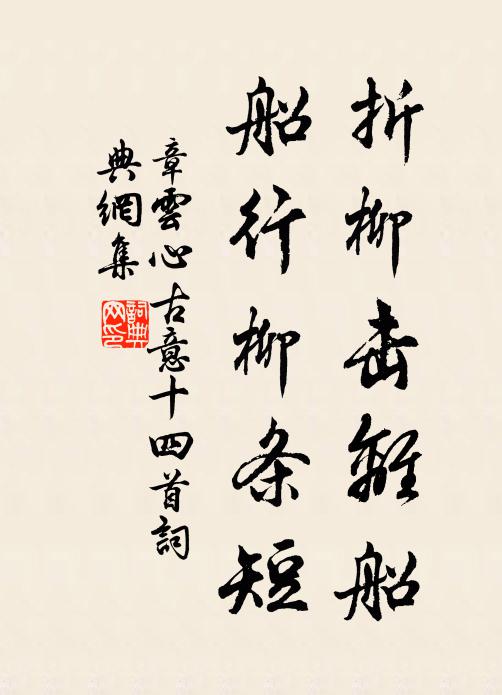 折柳击離船
船行柳条短
章雲心古意十四首詞
典網集
詞典
网印